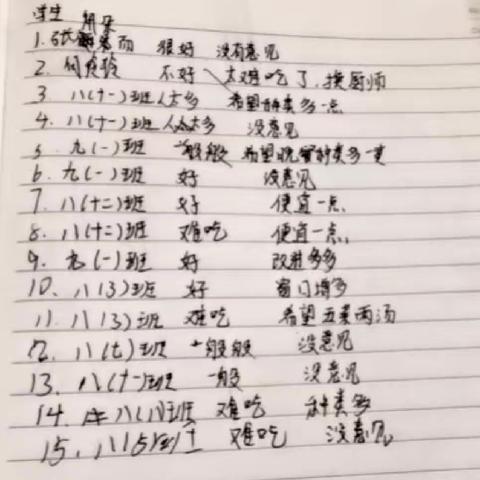 学生
1. 张 雨 很好 没有意见
2. 何 玲 不好 太难吃了,换厨师
3 八(十一)班人太多 希望种类多一点
4. 八(十一)班人太多 没意见
5 九(一)班 一般般 希望晚餐种类多一点
6. 九(一)班 好 没意见
7. 八(十二)班 好 便宜一点
8. 八(十二)班 难吃 便宜一点
9. 九(一)班 好 改进多多
10、八(3)班 好 窗口增多
11. 八(3)班 难吃 希望五菜两汤
12. 八(七)班 一般般 没意见
13. 八(十一)班 一般 没意见
14. 八(八)班 难吃 种类多
15、八(5)班 难吃 没意见